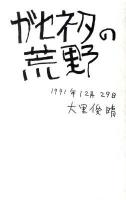 ガセネタの
荒野
1991年12月29日
大里俊晴